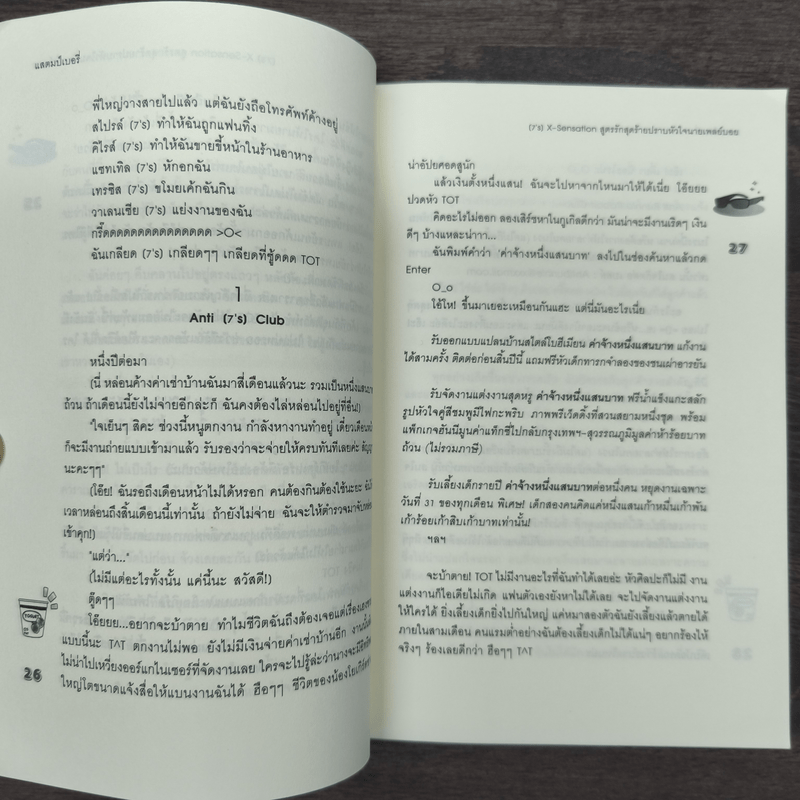 แสตมป์เบอรี่
พี่ใหญ่วางสายไปแล้ว แต่ฉันยังถือโทรศัพท์ค้างอยู่
สไปรส์ (7's) ทำให้ฉันถูกแฟนทิ้ง
คิไรส์ (7's) ทำให้ฉันขายขี้หน้าในร้านอาหาร
แซทเทิล (7's) หักอกฉัน
เทรซิส (7's) ขโมยเค้กฉันกิน
วาเลนเซีย (7's) แย่งงานของฉัน
กรี๊ดดดดดดดดดดดดดดด >O<
ฉันเกลียด (7's) เกลียดๆๆ เกลียดที่ซู้ดดด TOT
1
Anti (7's) Club
หนึ่งปีต่อมา
(นี่ หล่อนค้างค่าเช่าบ้านฉันมาสี่เดือนแล้วนะ รวมเป็นหนึ่งแสนบาท
ถ้วน ถ้าเดือนนี้ยังไม่จ่ายอีกล่ะก็ ฉันคงต้องไล่หล่อนไปอยู่ที่อื่น!)
"ใจเย็นๆ สิคะ ช่วงนี้หนูตกงาน กำลังหางานทำอยู่ เดี๋ยวเดือนหน้า
ก็จะมีงานถ่ายแบบเข้ามาแล้ว รับรองว่าจะจ่ายให้ครบทันทีเลยค่ะ
นะคะๆๆ"
(โอ๊ย! ฉันรอถึงเดือนหน้าไม่ได้หรอก คนต้องกินต้องใช้นะยะ
เวลาหล่อนถึงสิ้นเดือนนี้เท่านั้น ถ้ายังไม่จ่าย ฉันจะให้ตำรวจมาจับ
เข้าคุก!)
"แต่ว่า..."
(ไม่มีแต่อะไรทั้งนั้น แค่นี้นะ สวัสดี!)
ตู๊ดๆๆ
โอ๊ยยย...อยากจะบ้าตาย ทำไมชีวิตฉันถึงต้องเจอแต่เรื่อง
แบบนี้นะ T^T ตกงานไม่พอ ยังไม่มีเงินจ่ายค่าเช่าบ้านอีก
ไม่น่าไปเหวี่ยงออร์แกไนเซอร์ที่จัดงานเลย ใครจะไปรู้ล่ะว่านางจะมี
ใหญ่โตขนาดแจ้งสื่อให้แบนงานฉันได้ ฮือๆๆ ชีวิตของน้องโยเกิร์ต
26
(7's) X-Sensation สูตรรักสุดร้ายปราบหัวใจนายเพลย์บอย
น่าอัปยศอดสูนัก
แล้วเงินตั้งหนึ่งแสน! ฉันจะไปหาจากไหนมาให้ได้เนี่ย โอ๊ยยย
ปวดหัว TOT
คิดอะไรไม่ออก ลองเสิร์ชหาในกูเกิลดีกว่า มันน่าจะมีงานเริ่ดๆ เงิน
ดีๆ บ้างแหละน่าาา...
ฉันพิมพ์คำว่า 'ค่าจ้างหนึ่งแสนบาท' ลงไปในช่องค้นหาแล้วกด
Enter
O_o
โอ้โห! ขึ้นมาเยอะเหมือนกันแฮะ แต่นี่มันอะไรเนี่ย
รับออกแบบแปลนบ้านสไตล์โบฮีเมียน ค่าจ้างหนึ่งแสนบาท แก้งาน
ได้สามครั้ง ติดต่อก่อนสิ้นปีนี้ แถมฟรีหัวเด็กทารกจำลองของชนเผ่าอารยัน
รับจัดงานแต่งงานสุดหรู ค่าจ้างหนึ่งแสนบาท ฟรีน้ำแข็งแกะสลัก
รูปหัวใจคู่สีชมพูมีไฟกะพริบ ภาพพรีเว็ดดิ้งที่สวนสยามหนึ่งชุด พร้อม
แพ็กเกจฮันนีมูนค่าแท็กซี่ไปกลับกรุงเทพฯ-สุวรรณภูมิมูลค่าห้าร้อยบาท
ถ้วน (ไม่รวมภาษี)
รับเลี้ยงเด็กรายปี ค่าจ้างหนึ่งแสนบาทต่อหนึ่งคน หยุดงานเฉพาะ
วันที่ 31 ของทุกเดือน พิเศษ! เด็กสองคนคิดแค่หนึ่งแสนเก้าหมื่นเก้าพัน
เก้าร้อยเก้าสิบเก้าบาทเท่านั้น!
ฯลฯ
จะบ้าตาย! TOT ไม่มีงานอะไรที่ฉันทำได้เลยอ่ะ หัวศิลปะก็ไม่มี งาน
แต่งงานก็ไอเดียไม่เกิด แฟนตัวเองยังหาไม่ได้เลย จะไปจัดงานแต่งงาน
ให้ใครได้ ยิ่งเลี้ยงเด็กยิ่งไปกันใหญ่ แค่หมาสองตัวฉันยังเลี้ยงแล้วตายได้
ภายในสามเดือน คนแรมต่ำอย่างฉันต้องเลี้ยงเด็กไม่ได้แน่ๆ อยากร้องไห้
จริงๆ ร้องเลยดีกว่า ฮือๆๆ T^T
27